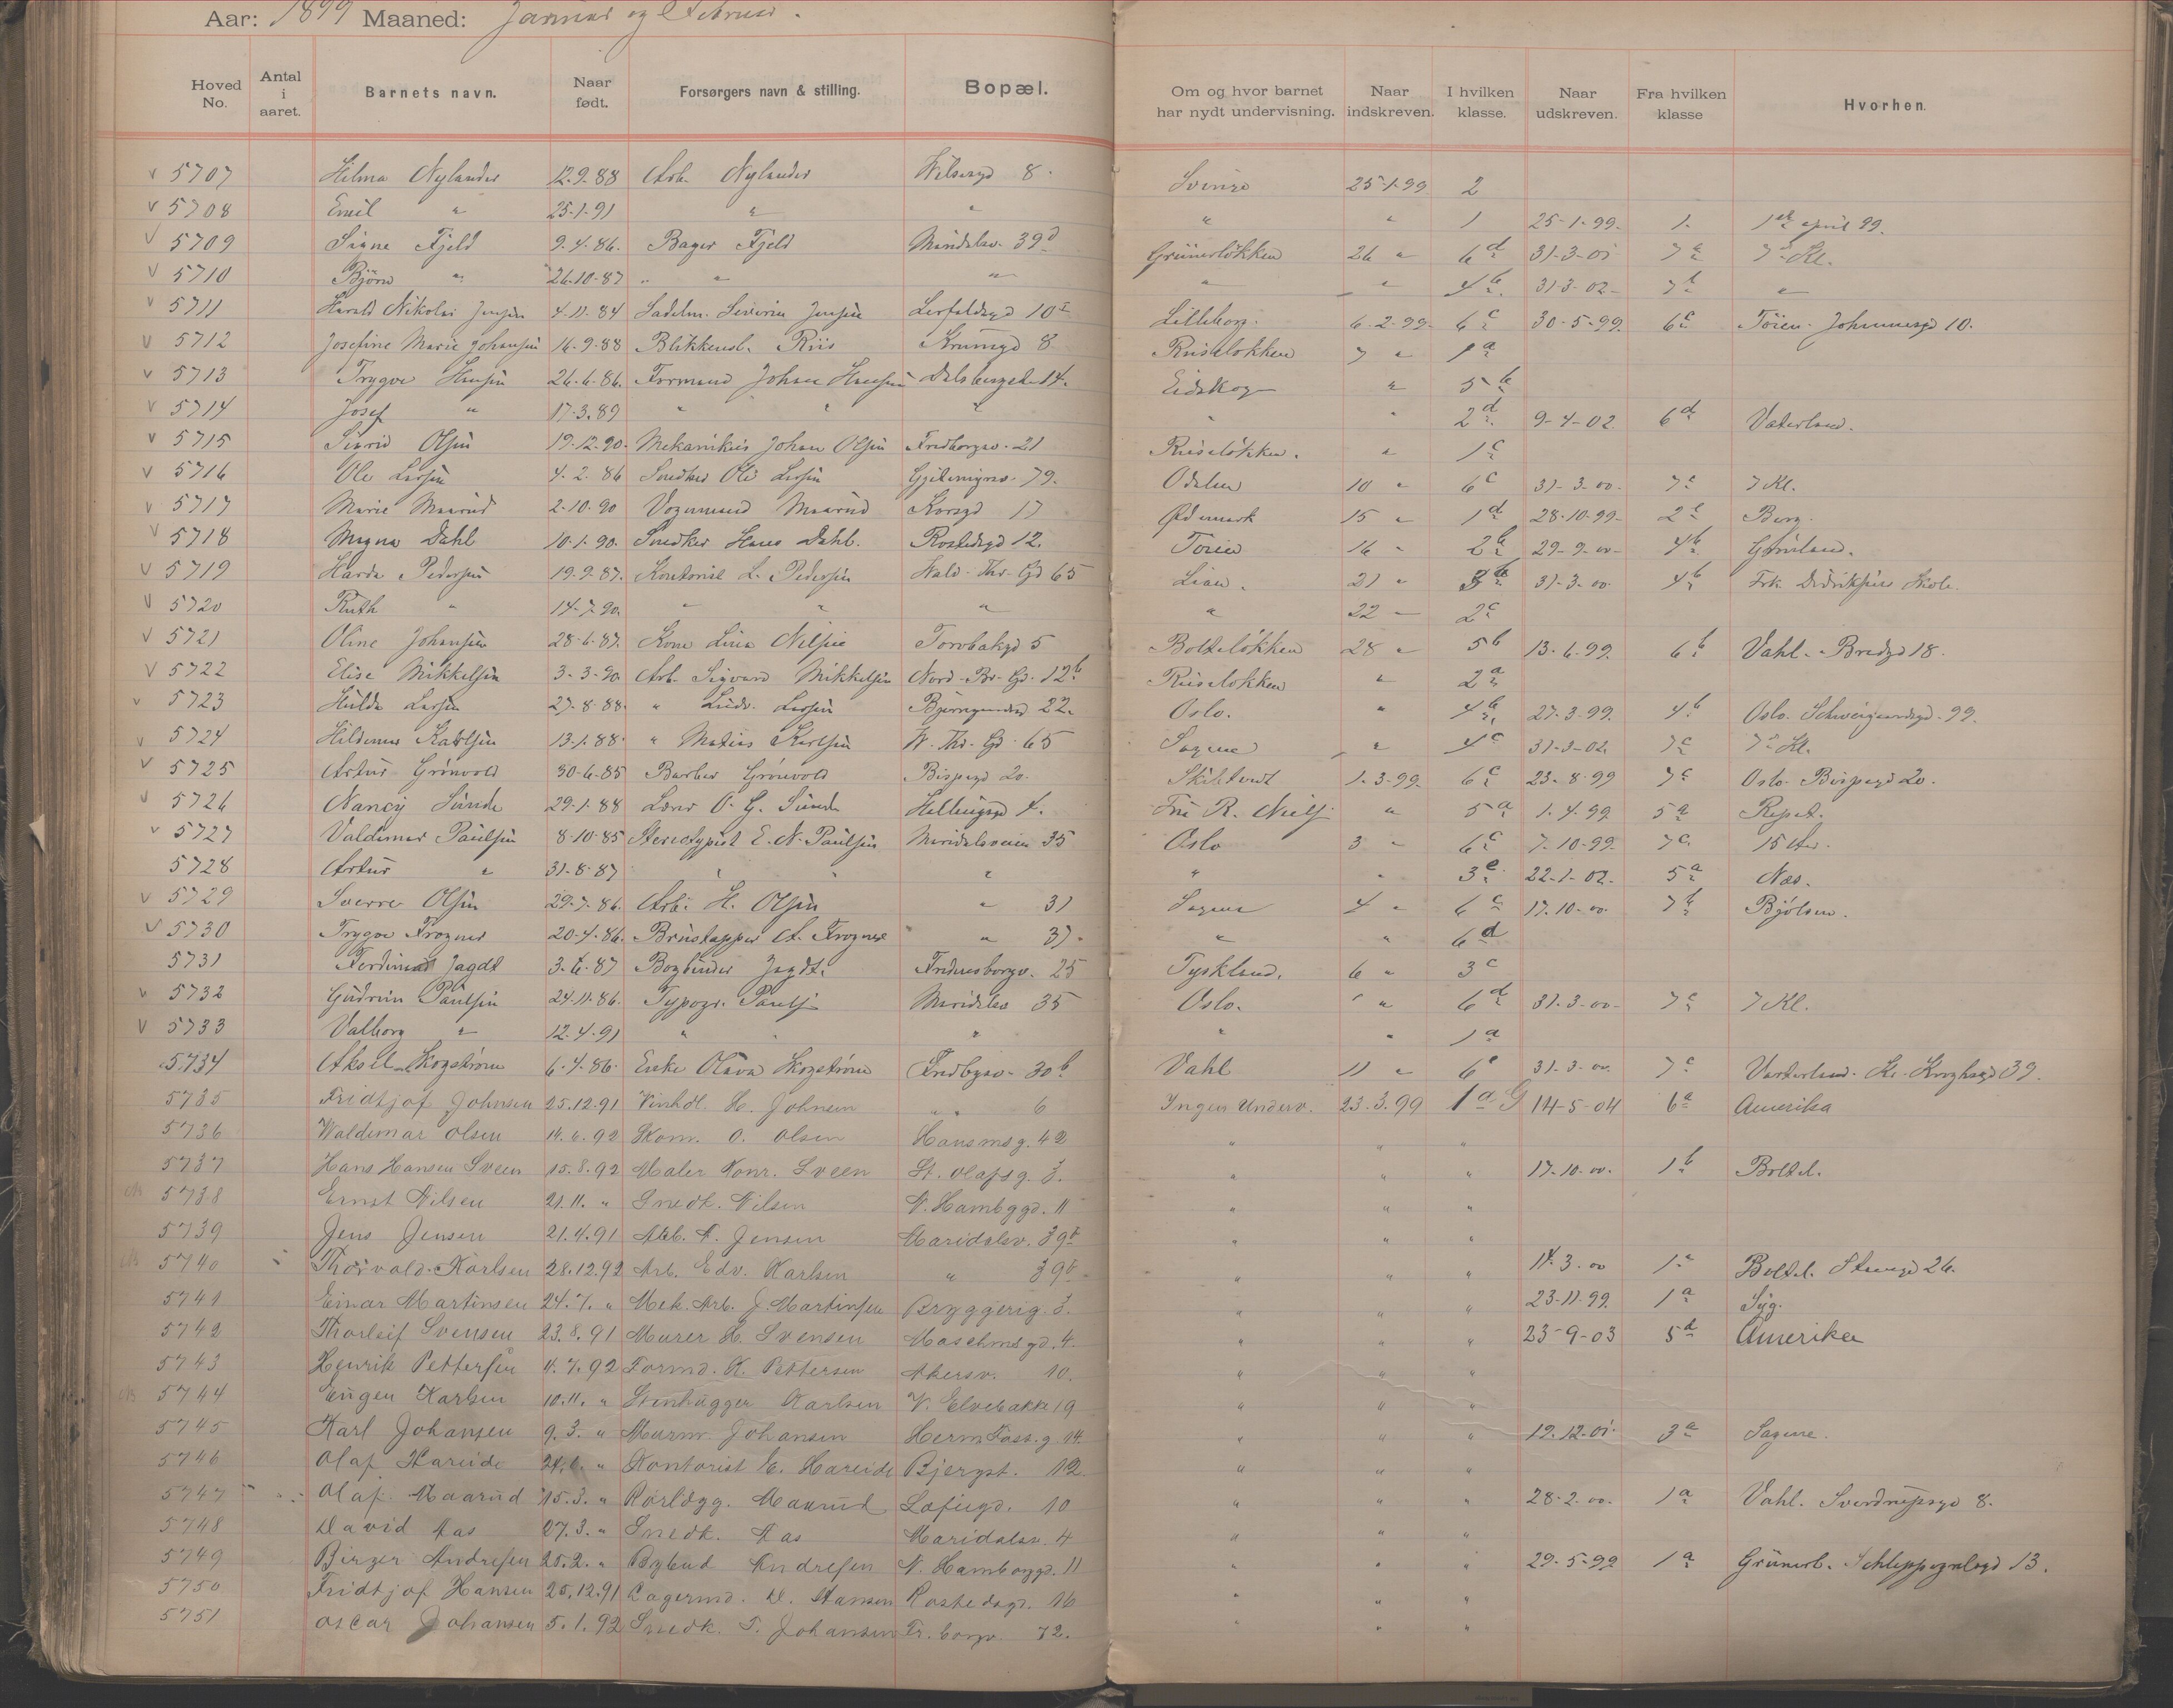 Aar: 1899 Maaned: Januar og Februar.
Hoved No. Antal i aaret. Barnets navn. Naar født. Forsørgers navn & stilling. Bopæl. Om og hvor barnet har nydt undervisning. Naar indskreven. I hvilken klasse. Naar udskreven. Fra hvilken klasse Hvorhen.
v 5707 Hilma Nylander 12-9-88 Arb. Nylander Wilsesgd 8. 25-1-99 2
v 5708 Emil " 25-1-91 " " " " 1 25-1-99. 1. 1ste april 99.
v 5709 Signe Fjeld 9-4-86. Bager Fjeld Maridalsv. 39d Grünerløkken 26 " 6d 31-3-01 7a 7de Kl.
v 5710 Bjørn " 26-10-87 " " " " " 4b. 31-3-02- 7b "
v 5711 Harald Nikolai Jensen 4-11-84 Sadelm. Severin Jensen Lerfaldsgd 10I Lilleborg. 6-2-99- 6c 30-5-99. 6c Tøien. Johannesgd 10.
v 5712 Josefine Marie Johansen 16-9-88 Blikkensl. Riis Krumgd 8 Ruseløkken 7 " 1a
v 5713 Trygve Hansen 26-6-86. Formand Johan Hansen Dalsbergsti 14. Eidskog " 5b
v 5714 Josef " 17-3-89 " " " " " 2d. 9-4-02 6d Vaterland.
v 5715 Sigrid Olsen 19-12-90. Mekanikus Johan Olsen Fredborgsv. 21 Ruseløkken. " 1c
v 5716 Ole Larsen 4-2-86 Snedker Ole Larsen 79. Odalen 10 " 6c 31-3-00. 7c 7 Kl.
v 5717 Marie Maarud 2-10-90 Vognmand Maarud Korsgd 17 Ødemark 15 " 1d 28-10-99- 2c Berg.
v 5718 Magna Dahl 10-1-90. Snedker Hans Dahl. Rostedsgd 12. Tøien 16 " 2b 29-9-00- 4b Grønland.
v 5719 Harda Pedersen 19-9-87. Kontorist L. Pedersen Wald. Thr. Gd 65 Lian. 21 " 3b 31-3-00 4b Frk. Didriksens Skole.
v 5720 Ruth " 14-7-90. " " " " 22 - 2c
v 5721 Oline Johansen 28-6-87. Kone Lina Nilsen Torvbakgd 5 Bolteløkken 28 " 5b 13-6-99. 6b Vahl. Bredgd 18.
v 5722 Elise Mikkelsen 3-3-90 Arb. Sigvard Mikkelsen Nord-Br-Gd. 12b Ruseløkken " 2a
v 5723 Hulda Larsen 27-8-88. " Ludv. Larsen 22. Oslo. " 4b. 27-3-99. 4b Oslo. Schweigaardsgd. 99.
v 5724 Karlsen 13-1-88. " Matias Karlsen W. Thr. Gd. 65 Sagene " 4c 31-3-02. 7c 7de Kl.
v 5725 Artur Grønvold 30-6-85 Barber Grønvold Bispegd 20. 1-3-99. 6c 23-8-99 7c Oslo. Bispegd 20.
v 5726 Nancy Sunde 29-1-88 Lærer O. G. Sunde 4. Frk R. " 5a 1.4.99 5a Repet.
v 5727 Valdemar Paulsen 8-10-85 Stereotypist E. N. Paulsen Maridalsveien 35 Oslo 3 " 6c 7-10-99. 7c. 15 Aar.
5728 Artur " 31-8-87 " " " " " 3e. 22-1-02. 5a Næs.
v 5729 Sverre Olsen 29-7-86. Arb. H. Olsen " 31 Sagene 4 " 6c 17.10-00. 7b Bjølsen.
v 5730 Trygve Frogner 20-4-86. Brustapper A. Frogner " 37. " " 6d
5731 Ferdinand Jagdt 3-6-87 Bogbinder Jagdt. 25 Tyskland. 6 " 3c
v 5732 Gudrun Paulsen 24-11-86. Typogr. Paulsen Maridalsv 35 Oslo. " " 6d 31-3-00- 7c 7 Kl.
v 5733 Valborg " 12-4-91 " " " " " 1a
5734 Aksel Skogstrøm 6-4-86. Enke Olava Skogstrøm Fredbgsv. 30b Vahl 11 " 6c 31-3-00. 7c Vaterland. Kr. Kroghsgd 39.
5735 Fridtjof Johnsen 25.12.91 Vinhdl. H. Johnsen " " 6 Ingen Underv. 23.3.99 1a G 14-5-04 6a Amerika
5736 Waldemar Olsen 14.6.92 Kom. O. Olsen Hausmsg. 42 " " "
5737 Hans Hansen Sveen 15.8.92 Maler Konr. Sveen St. Olafsg. 3. " " " 17-10-00. 1b Boltel.
5738 Ernst Nilsen 21.11. " Snedk. Nilsen N. Hambggd. 11 " " "
5739 Jens Jensen 21.4.91 Arb. A. Jensen Maridalsv. 39b " " "
5740 Thorvald Karlsen 28.12.92 Arb. Edv. Karlsen " 39b " " " 14.3.00 1a Boltel. Stensgd 26.
5741 Einar Martinsen 24.7. " Mek. Arb. J. Martinsen Bryggerig. 3. " " " 23-11-99. 1a Syg.
5742 Thorleif Svensen 23.8.91 Murer H. Svensen gd. 4. " " " 23-9-03 5d Amerika
5743 Henrik Pettersen 11.7.92 Formd. K. Pettersen Akersv. 10. " " "
5744 Eugen Karlsen 10.11. " Stenhugger Karlsen V. Elvebakke 19 " " "
5745 Karl Johansen 9.3. " Murm. Johansen Herm. Foss.g. 14. " " " 19-12-01. 3a Sagene.
5746 Olaf Hareide " Kontorist E. Hareide Bjergst. 12. " " "
5747 Olaf Maarud 15.3. " Rørlægg. Maarud 10 " " " 28-2-00. 1a Vahl. Sverdrupsgd 8.
5748 David Aas 27.3. " Snedk. Aas Maridalsv. 4 " " "
5749 Birger Andresen 25.2. " Bybud Andresen N. Hambggd. 11 " " " 29-5-99 1a Grünerl. Schleppegrelsgd 13.
5750 Fridtjof Hansen 25.12.91 Lagermd. D. Hansen Rostedsgd. 16 " " "
5751 Oscar Johansen 5.1.92 Snedk. T. Johansen Fr.borgv. 72. " " "